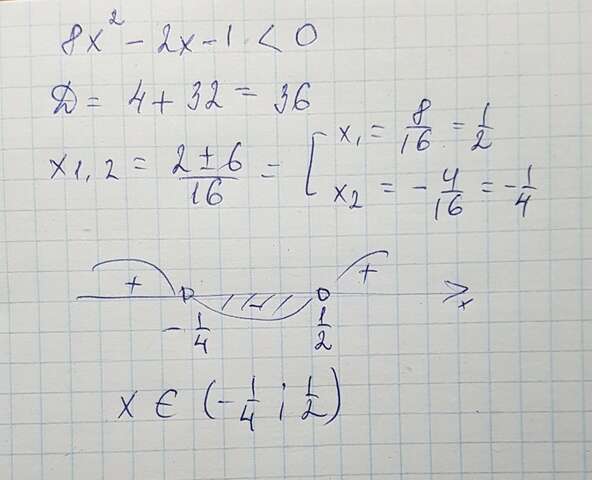 8x² - 2x - 1 < 0
D = 4 + 32 = 36
x1,2 = 2 ± 6 / 16 = [ x₁ = 8/16 = 1/2
x₂ = - 4/16 = - 1/4
+ - + x
- 1/4 1/2
x ∈ (- 1/4 ; 1/2)